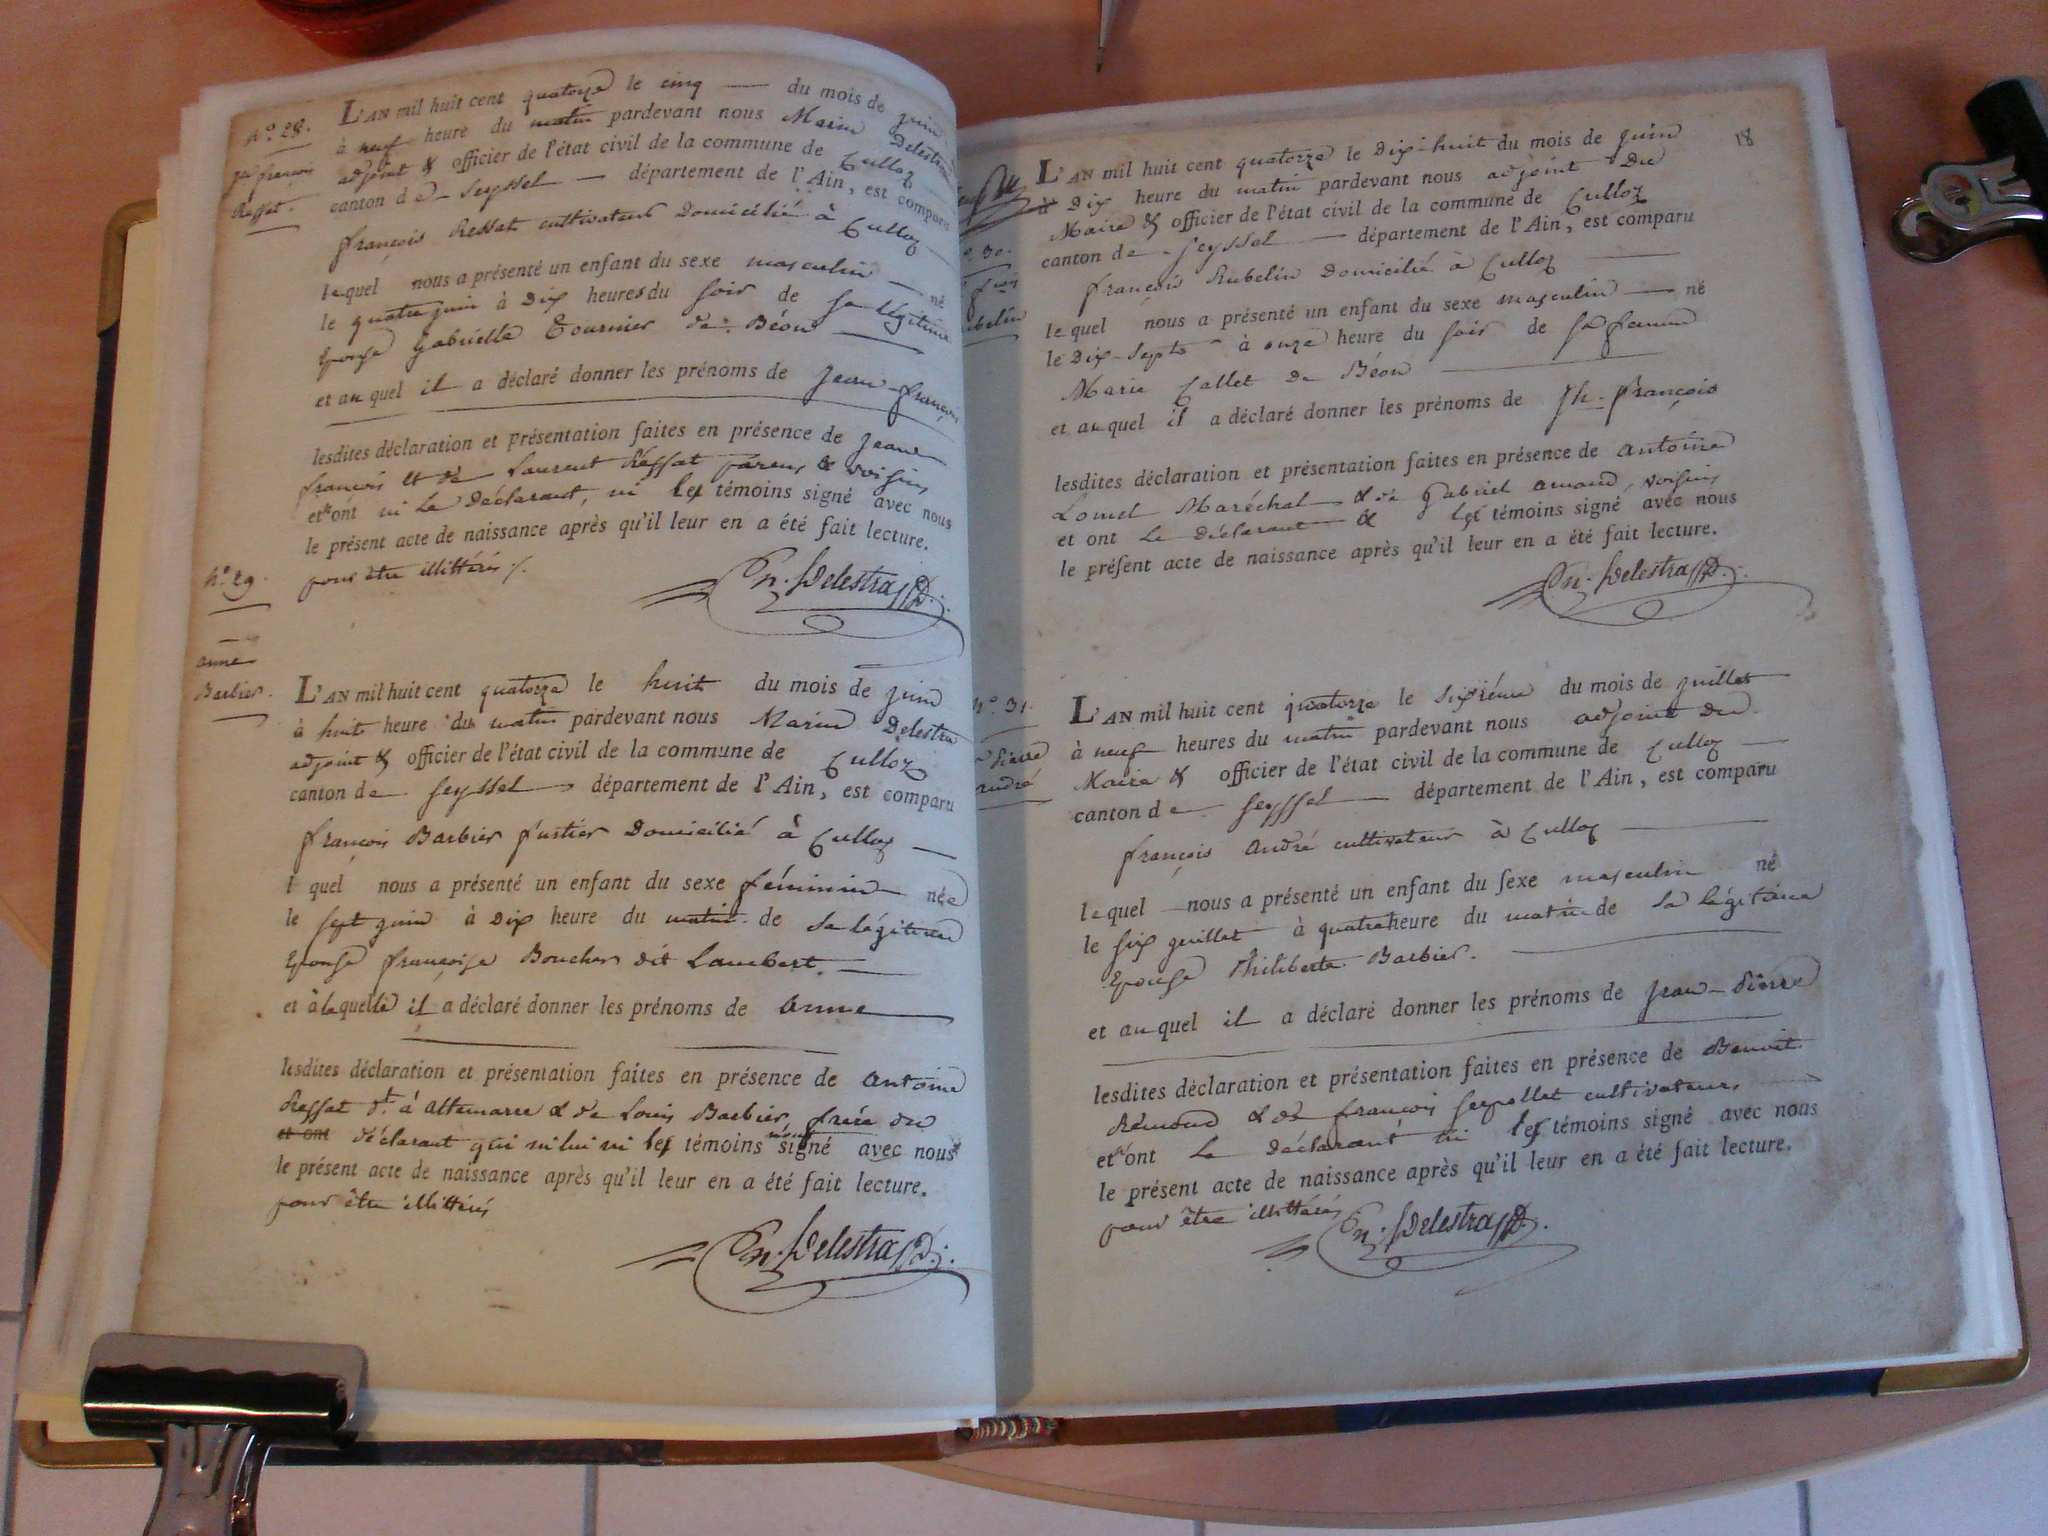 n.° 28.
Jn françois
Ressat.
L'AN mil huit cent quatorze le cinq du mois de juin
à neuf heure du matin pardevant nous Marin Delestra
adjoint & officier de l'état civil de la commune de Culloz
canton de Seyssel département de l'Ain, est comparu
françois Ressat cultivateur Domicilié à Culloz
lequel nous a présenté un enfant du sexe masculin né
le quatre juin à Dix heures du soir de sa légitime
Epouse Gabrielle Tournier de Béon
et auquel il a déclaré donner les prénoms de Jean-françois
lesdites déclaration et présentation faites en présence de Jean
françois et de Laurent Ressat parens & voisins
et n'ont ni Le Déclarant, ni les témoins signé avec nous
le présent acte de naissance après qu'il leur en a été fait lecture.
pour être illittérés /.
Mn. Delestra
n.° 29
anne
Barbier.
L'AN mil huit cent quatorze le huit du mois de juin
à huit heure du matin pardevant nous Marin Delestra
adjoint & officier de l'état civil de la commune de Culloz
canton de Seyssel département de l'Ain, est comparu
françois Barbier fustier Domicilié à Culloz
lequel nous a présenté un enfant du sexe féminin née
le sept juin à Dix heure du matin de sa légitime
Epouse françoise Boucher dit Lambert.
et à laquelle il a déclaré donner les prénoms de anne
lesdites déclaration et présentation faites en présence de antoine
Ressat dt. à attemarre & de Louis Barbier frère du
et ont déclarant qui ni lui ni les témoins n'ont signé avec nous
le présent acte de naissance après qu'il leur en a été fait lecture.
pour être illittérés
Mn. Delestra
18
n.° 30.
françois
Rubelin
L'AN mil huit cent quatorze le Dix-huit du mois de juin
à Dix heure du matin pardevant nous adjoint Du
Maire & officier de l'état civil de la commune de Culloz
canton de Seyssel département de l'Ain, est comparu
françois Rubelin Domicilié à Culloz
lequel nous a présenté un enfant du sexe masculin né
le Dix-Sept à onze heure du soir de sa femme
Marie Callet de Béon
et auquel il a déclaré donner les prénoms de Jh. françois
lesdites déclaration et présentation faites en présence de antoine
Maréchal & de gabriel amand, voisins
et ont Le déclarant & les témoins signé avec nous
le présent acte de naissance après qu'il leur en a été fait lecture.
Mn. Delestra
n.° 31.
Pierre
andré
L'AN mil huit cent quatorze le Sixième du mois de juillet
à neuf heures du matin pardevant nous adjoint Du
Maire & officier de l'état civil de la commune de Culloz
canton de Seyssel département de l'Ain, est comparu
françois andré cultivateur à Culloz
lequel nous a présenté un enfant du sexe masculin né
le six juillet à quatre heure du matin de sa légitime
Epouse Philiberte Barbier.
et auquel il a déclaré donner les prénoms de Jean-Pierre
lesdites déclaration et présentation faites en présence de Benoit
Rémond & de françois Serpollet cultivateurs
et n'ont Le Déclarant ni les témoins signé avec nous
le présent acte de naissance après qu'il leur en a été fait lecture.
pour être illittérés
Mn. Delestra